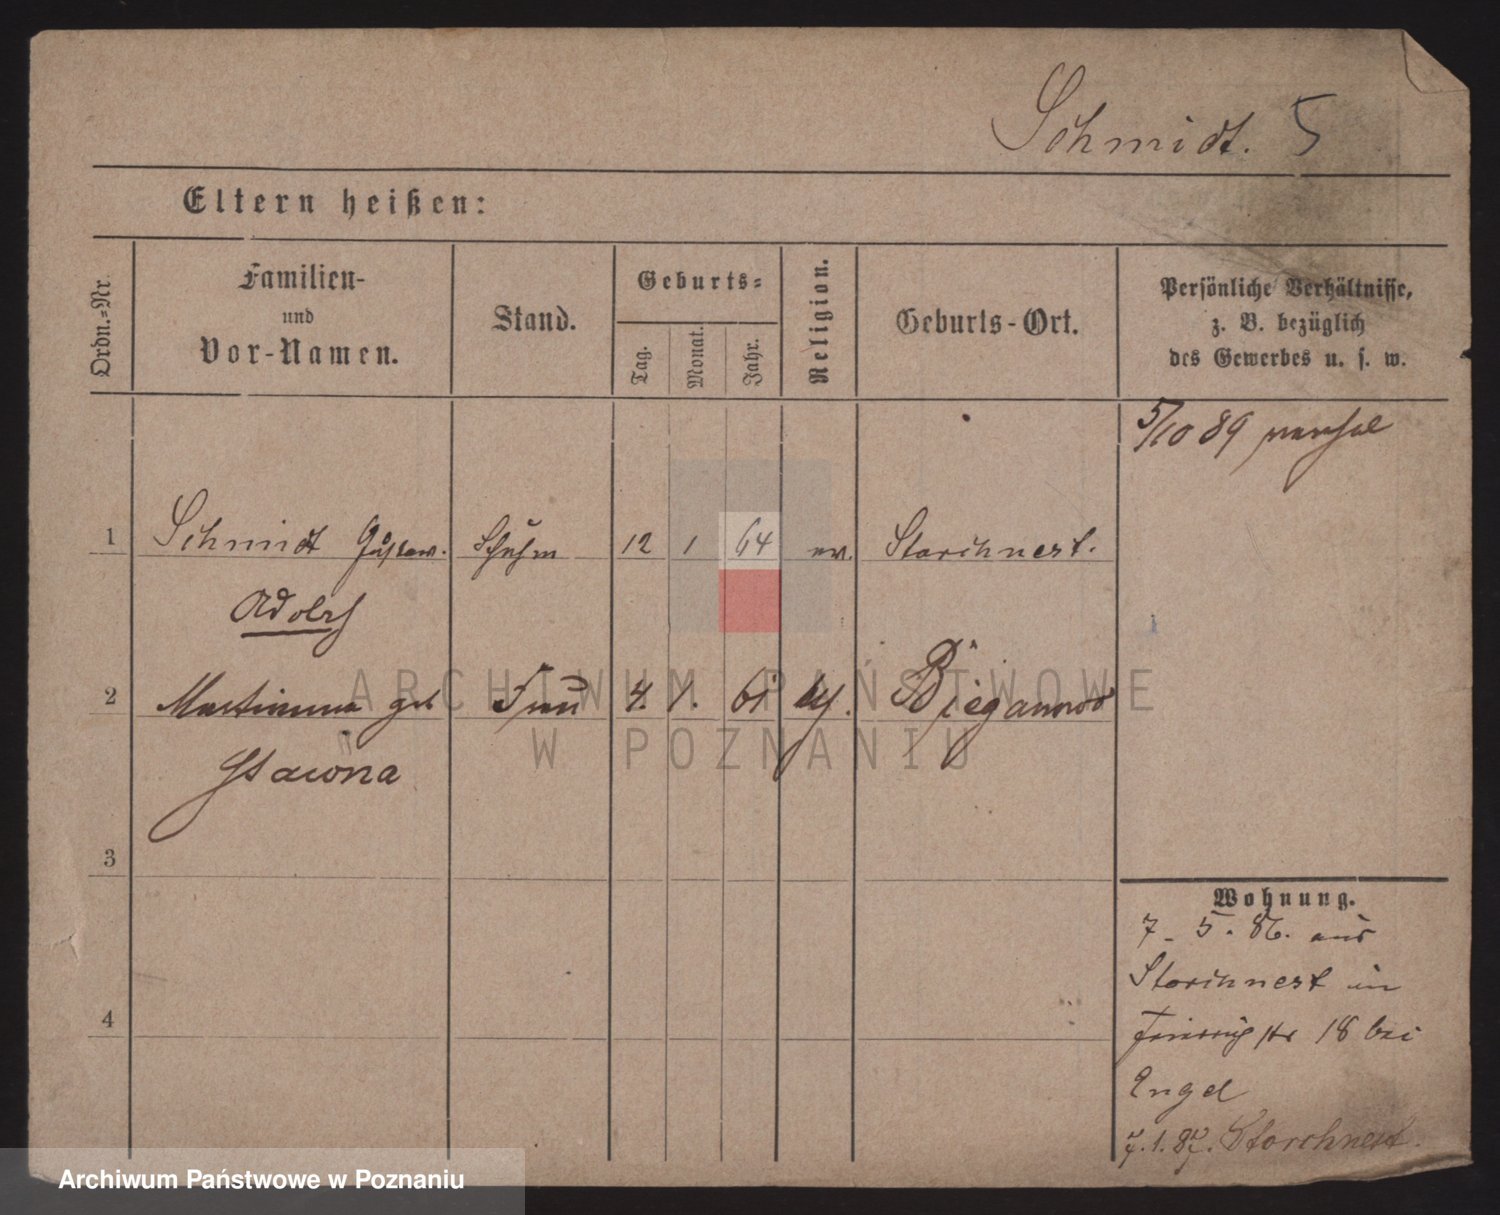 Schmidt. 5
Eltern heißen:
Ordn.=Nr.
Familien-
und
Vor-Namen.
Stand.
Geburts=
Tag.
Monat.
Jahr.
Religion.
Geburts-Ort.
Persönliche Verhältnisse,
z. B. bezüglich
des Gewerbes u. s. w.
5/10 89
1 Schmidt Gustav. Schuhm 12 1 64 ev. Storchnest.
Adolf
2 geb Frau 4. 1. 61 Bieganowo
3
4
Wohnung.
7. 5. 86. aus
Storchnest in
18 bei
Engel
7.1.87. Storchnest.
ARCHIWUM PAŃSTWOWE
W POZNANIU
Archiwum Państwowe w Poznaniu